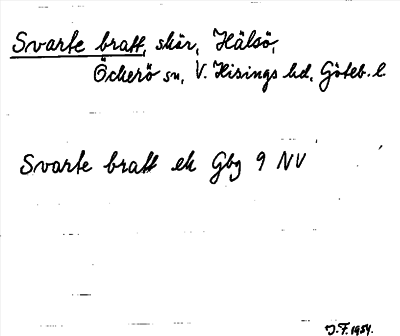 Svarte bratt, skär, Hälsö,
Öckerö sn, V. Hisings hd, Göteb. l.
Svarte bratt ek Gbg 9 NV
J.F. 1954.